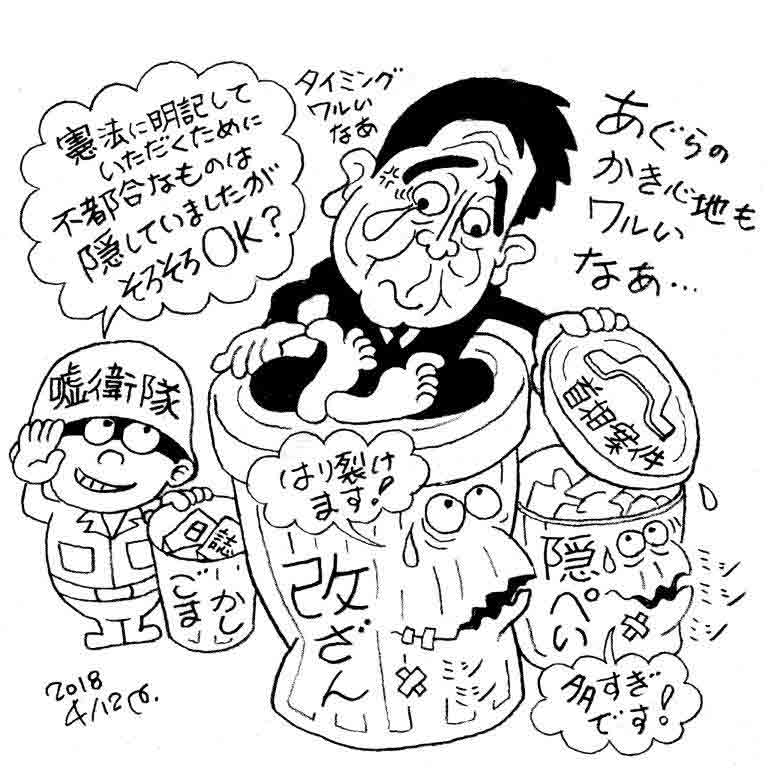 憲法に明記して
いただくために
不都合なものは
隠していましたが
そろそろOK?
タイミング
ワルい
なあ
あぐらの
かき心地も
ワルい
なあ…
嘘衛隊
日誌
ごまかし
はり裂け
ます!
改ざん
ミシ
ミシ
首相案件
隠ぺい
ミシ
ミシ
ミシ
多すぎ
です!
2018
4/12